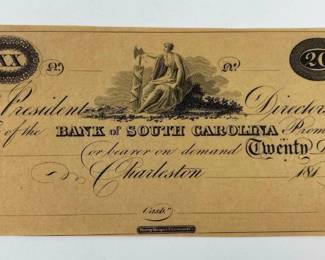 XX Nº. Nº. 20
President Director
of the BANK of SOUTH CAROLINA Prom
or bearer on demand Twenty D
Charleston 181
Cash.ʳ